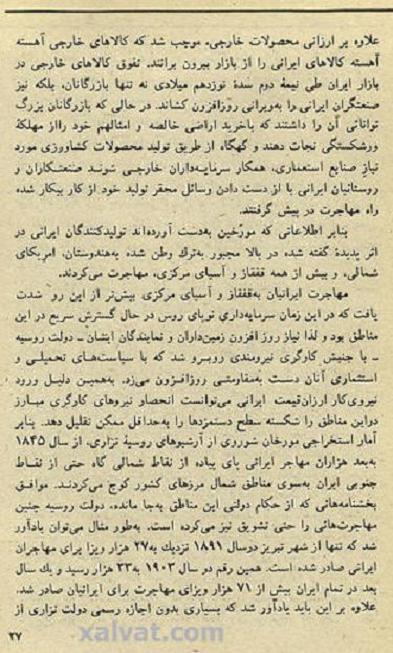 علاوه بر ارزانی محصولات خارجی، موجب شد که کالاهای خارجی آهسته
آهسته کالاهای ایرانی را از بازار بیرون برانند. تفوق کالاهای خارجی در
بازار ایران طی نیمهٔ دوم سدهٔ نوزدهم میلادی نه تنها بازرگانان، بلکه نیز
صنعتگران ایرانی را به‌ویرانی روزافزون کشاند. در حالی که بازرگانان بزرگ
توانائی آن را داشتند که باخرید اراضی خالصه و امثالهم خود رااز مهلکهٔ
ورشکستگی نجات دهند و گهگاه از طریق تولید محصولات کشاورزی مورد
نیاز صنایع استعماری، همکار سرمایه‌داران خارجی شوند صنعتکاران و
روستائیان ایرانی با از دست دادن وسائل محقر تولید خود از کار بیکار شده
راه مهاجرت در پیش گرفتند.
بنابر اطلاعاتی که مورّخین به‌دست آورده‌اند تولیدکنندگان ایرانی در
اثر پدیدهٔ گفته شده در بالا مجبور به‌ترك وطن شده به‌هندوستان، امریکای
شمالی، و بیش از همه قفقاز و آسیای مرکزی، مهاجرت می‌کردند.
مهاجرت ایرانیان به‌قفقاز و آسیای مرکزی بیش‌تر از این رو شدت
یافت که در این زمان سرمایه‌داری نوپای روس در حال گسترش سریع در این
مناطق بود و لذا نیاز روز افزون زمین‌داران و نمایندگان ایشان ـ دولت روسیه
ـ با جنبش کارگری نیرومندی روبرو شد که با سیاست‌های تحمیلی و
استثماری آنان دست به‌مقاومتی روزافزون می‌زد. به‌همین دلیل ورود
نیروی‌کار ارزان‌قیمت ایرانی می‌توانست انحصار نیروهای کارگری مبارز
دراین مناطق را شکسته سطح دستمزدها را به‌حداقل ممکن تقلیل دهد. بنابر
آمار استخراجی مورخان شوروی از آرشیوهای روسیهٔ تزاری، از سال ۱۸۴۵
به‌بعد هزاران مهاجر ایرانی پای پیاده از نقاط شمالی گاه حتی از نقاط
جنوبی ایران به‌سوی مناطق شمال مرزهای کشور کوچ می‌کردند. موافق
بخشنامه‌هائی که از حکام دولتی این مناطق به‌جا مانده، دولت روسیه چنین
مهاجرت‌هائی را حتی تشویق نیز می‌کرده است. به‌طور مثال می‌توان یادآور
شد که تنها از شهر تبریز درسال ۱۸۹۱ نزدیك به۲۷ هزار ویزا برای مهاجران
ایرانی صادر شده است. همین رقم در سال ۱۹۰۳ به۳۳ هزار رسید و یك سال
بعد در تمام ایران بیش از ۷۱ هزار ویزای مهاجرت برای ایرانیان صادر شد.
علاوه بر این باید یادآور شد که بسیاری بدون اجازه رسمی دولت تزاری از
۲۷
xalvat.com